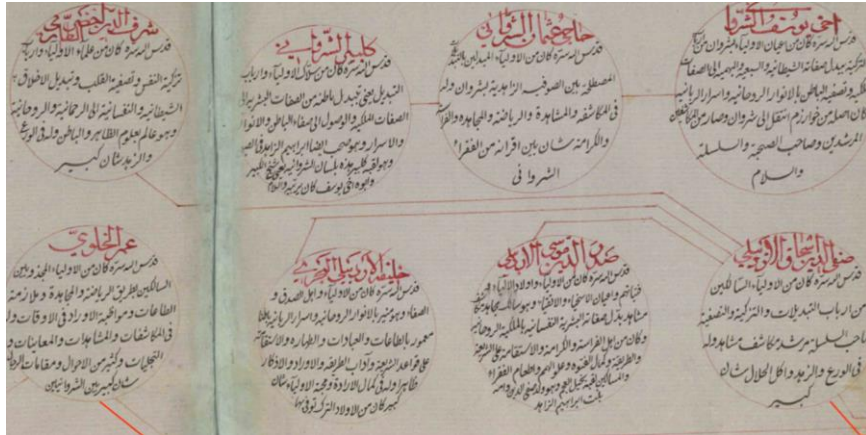 اخى يوسف الشروانى
قدس الله سره كان من اعيان الاولياء بشروان من
للتزكية بتبديل صفاته الشيطانية والسبعية والبهيمية الى الصفات
الملكية وتصفية الباطن بالانوار الروحانية واسرار الربانية
كان اصله من خوارزم انتقل الى شروان وصار من
المرشدين وصاحب الصحبة والسلسلة
والسلام
حاجى عثمان الشروانى
قدس الله سره كان من الاولياء
المصطلح بين الصوفية الزاهدية بشروان وله
فى المكاشفة والمشاهدة والرياضة والمجاهدة
والكرامة شان بين اقرانه من الفقراء
الشروانى
الشروانى
قدس الله سره كان من الاولياء وارباب
التبديل يعنى تبديل باطنه من الصفات البشرية الى
الصفات الملكية والوصول الى صفاء الباطن والانوار
والاسرار وهو صحب ايضا ابراهيم الزاهد فى
بلسان الشروانية يعنى الكبير
وابوه اخى يوسف كان
شرف الدين
قدس الله سره كان من علماء الاولياء وارباب
تزكية النفس وتصفية القلب وتبديل الاخلاق
الشيطانية والنفسانية الى الرحمانية والروحانية
وهو عالم بعلوم الظاهر والباطن وله فى الورع
والزهد شان كبير
صفى الدين اسحاق الاردبيلى
قدس الله سره كان من الاولياء السالكين
من ارباب التبديلات والتزكية والتصفية
صاحب السلسلة مرشد مكاشف مشاهد وله
فى الورع والزهد واكل الحلال شان
كبير
صدر الدين موسى الاردبيلى
قدس الله سره كان من الاولياء واولاد الاولياء
واعيان الاسخياء والاتقياء وهو سالك مجاهد
مشاهد بدل صفاته البشرية النفسانية بالملكية الروحانية
وكان من اهل الفراسة والكرامة والاستقامة على الشريعة
والطريقة وكمال الفتوة وعلو الهمم واطعام الفقراء
والمساكين
بنت ابراهيم الزاهد
خليفة الاردبيلى
قدس الله سره كان من الاولياء واهل الصدق و
الصفاء وهو منير بالانوار الروحانية واسرار الربانية
معمور بالطاعات والعبادات والطهارة والاستقامة
على قواعد الشريعة وآداب الطريقة والاوراد والاذكار
ظاهر وله فى كمال الارادة ومحبة الاولياء شان
كبير كان من الاولاد الترك توفى بها
عمر الخلوتى
قدس الله سره كان من الاولياء المجذوبين
السالكين بطريق الرياضة والمجاهدة وملازمة
الطاعات ومواظبة الاوراد فى الاوقات وله
فى المكاشفات والمشاهدات والمعاينات و
التجليات وكثير من الاحوال ومقامات
شان كبير بين الشروانيين